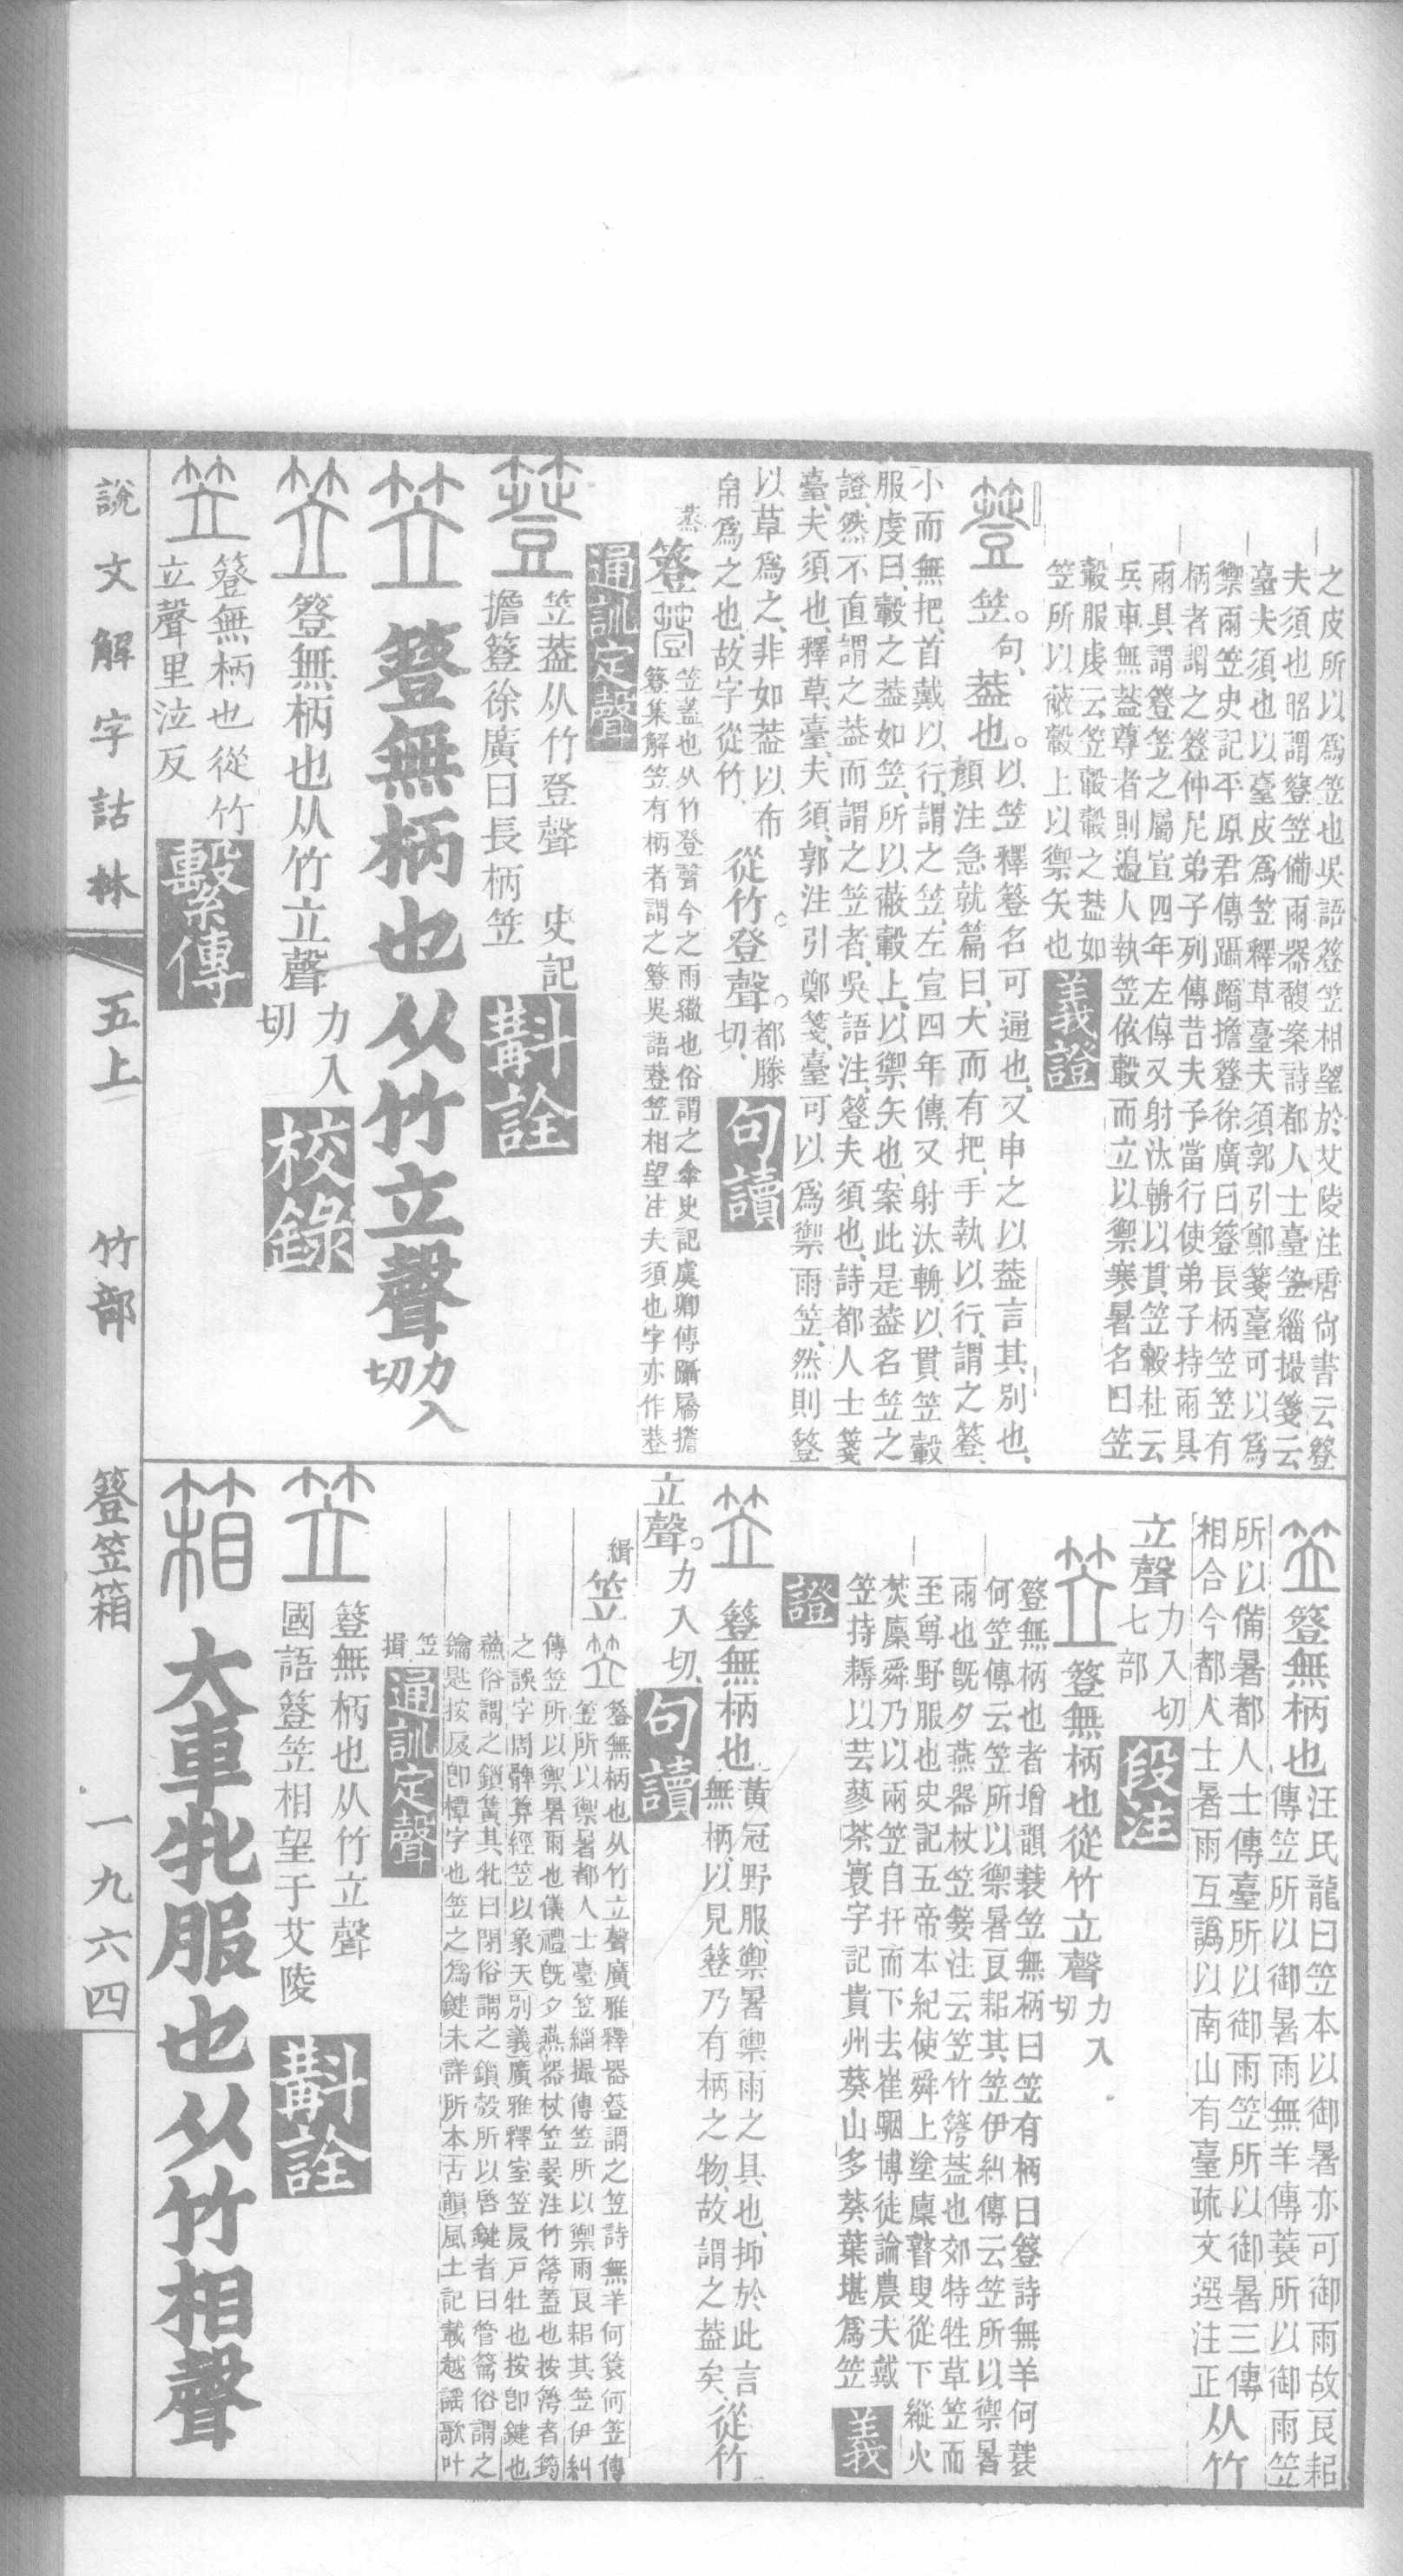 之皮所以爲笠也吳語簦笠相望於艾陵注唐尙書云簦
夫須也昭謂簦笠備雨器馥案詩都人士臺笠緇撮箋云
臺夫須也以臺皮爲笠釋草臺夫須郭引鄭箋臺可以爲
禦雨笠史記平原君傳躡蹻擔簦徐廣曰簦長柄笠笠有
柄者謂之簦仲尼弟子列傳昔夫子當行使弟子持雨具
雨具謂簦笠之屬宣四年左傳又射汰輈以貫笠轂杜云
兵車無葢尊者則邊人執笠依轂而立以禦寒暑名曰笠
轂服虔云笠轂轂之葢如
笠所以蔽轂上以禦矢也
義證
簦 笠。句、葢也。以笠釋簦名可通也、又申之以葢言其別也、
顏注急就篇曰、大而有把、手執以行、謂之簦、
小而無把、首戴以行、謂之笠、左宣四年傳、又射汰輈、以貫笠轂
服虔曰、轂之葢如笠、所以蔽轂上、以禦矢也、案此是葢名笠之
證、然不直謂之葢而謂之笠者、吳語注、簦夫須也、詩都人士箋
臺、夫須也、釋草、臺、夫須、郭注引鄭箋、臺可以爲禦雨笠、然則簦
以草爲之、非如葢以布
帛爲之也、故字從竹、
從竹。登聲。都滕
切、
句讀
蒸
簦簦笠葢也从竹登聲今之雨繖也俗謂之傘史記虞卿傳躡屩擔
簦集解笠有柄者謂之簦吳語簦笠相望注夫須也字亦作䔲
通訓定聲
簦 笠葢从竹登聲 史記
擔簦徐廣曰長柄笠
斠詮
笠 簦無柄也从竹立聲力入
切
笠 簦無柄也从竹立聲
力入
切
校錄
笠 簦無柄也從竹
立聲里泣反
繫傳
笠簦無柄也汪氏龍曰笠本以御暑亦可御雨故良耜
傳笠所以御暑雨無羊傳蓑所以御雨笠
所以備暑都人士傳臺所以御雨笠所以御暑三傳
相合今都人士暑雨互譌以南山有臺疏文選注正从竹
立聲力入切
七部
段注
笠 簦無柄也從竹立聲力入
切
簦無柄也者增韻蓑笠無柄曰笠有柄曰簦詩無羊何蓑
何笠傳云笠所以禦暑良耜其笠伊糾傳云笠所以禦暑
雨也旣夕燕器杖笠翣注云笠竹䈽葢也郊特牲草笠而
至尊野服也史記五帝本紀使舜上塗廩瞽叟從下縱火
焚廩舜乃以兩笠自扞而下去崔駰博徒論農夫戴
笠持耨以芸蓼荼寰宇記貴州葵山多葵葉堪爲笠
義
證
笠 簦無柄也、黃冠野服、禦暑禦雨之具也、抑於此言
無柄、以見簦乃有柄之物、故謂之葢矣、從竹
立聲。力入切、
句讀
緝
笠笠簦無柄也从竹立聲廣雅釋器簦謂之笠詩無羊何簑何笠傳
笠所以禦暑都人士臺笠緇撮傳笠所以禦雨良耜其笠伊糾
傳笠所以禦暑雨也儀禮旣夕燕器杖笠翣注竹䈽蓋也按䈽者筠
之誤字周髀算經笠以象天別義廣雅釋室笠扊戶牡也按卽鍵也
蘓俗謂之鎖簧其牝曰閉俗謂之鎖殼所以啓鍵者曰管籥俗謂之
鑰匙按扊卽橝字也笠之爲鍵未詳所本古韻風土記載越謠歌叶
笠
揖
通訓定聲
笠 簦無柄也从竹立聲
國語簦笠相望于艾陵
斠詮
箱 大車牝服也从竹相聲
說文解字詁林 五上 竹部 簦笠箱 一九六四